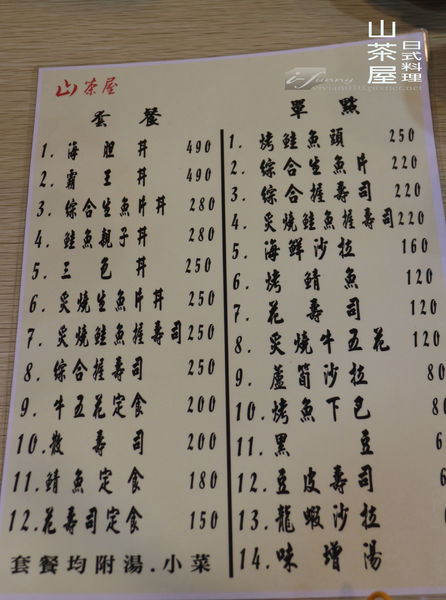 山茶屋
日式料理
i-Funny
vivian010.pixnet.net
山茶屋
套餐
1. 海胆丼 490
2. 霸王丼 490
3. 综合生魚片丼 280
4. 鮭魚親子丼 280
5. 三色丼 250
6. 炙燒生魚片丼 250
7. 炙燒鮭魚握壽司 250
8. 綜合握壽司 250
9. 牛五花定食 200
10. 散壽司 200
11. 鯖魚定食 180
12. 花壽司定食 150
套餐均附湯.小菜
單點
1. 烤鮭魚頭 250
2. 綜合生魚片 220
3. 綜合握壽司 220
4. 炙燒鮭魚握壽司 220
5. 海鮮沙拉 160
6. 烤鯖魚 120
7. 花壽司 120
8. 炙燒牛五花 120
9. 蘆筍沙拉 80
10. 烤魚下巴 80
11. 黑豆 6
12. 豆皮壽司 6
13. 龍蝦沙拉
14. 味增湯